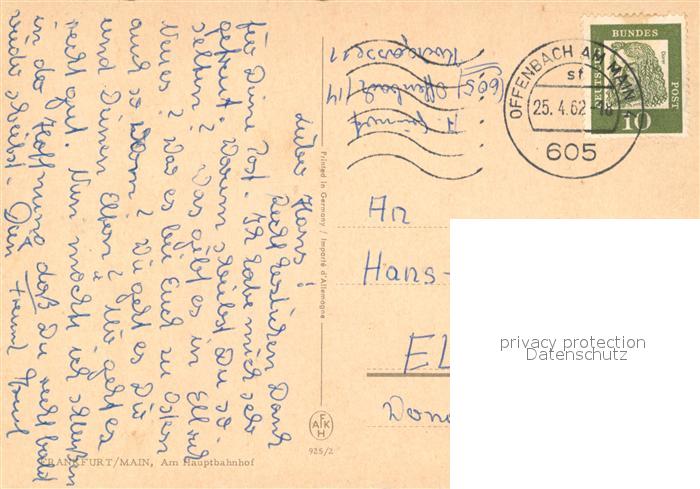 Lieber Hans!
Recht herzlichen Dank
für Deine Post. Ich habe mich sehr
gefreut. Warum schreibst Du so
selten? Was gibt es in Ell
Neues? Was es bei Euch zu Ostern
auch so Warm? Wie geht es Dir
und Deinen Eltern? Mir geht es
recht gut. Nun möcht ich schließen
in der Hoffnung daß Du recht bald
wieder schreibst. Dein Freund
(605) Offenbach/M
Printed in Germany / Importé d'Allemagne
OFFENBACH AM MAIN
sf
25. 4. 62 - 18
605
DEUTSCHE
BUNDES
POST
Dürer
10
An
Hans-
EL
Dona
privacy protection
Datenschutz
AFKH
925/2
FRANKFURT/MAIN, Am Hauptbahnhof